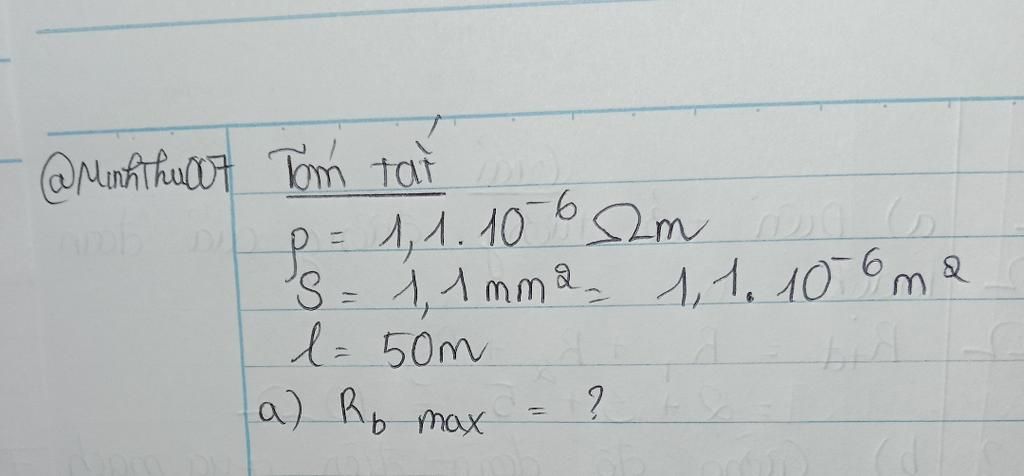 @MinhThu007 Tóm tắt
ρ = 1,1.10⁻⁶ Ωm
S = 1,1mm² = 1,1.10⁻⁶m²
l = 50m
a) R_b max = ?